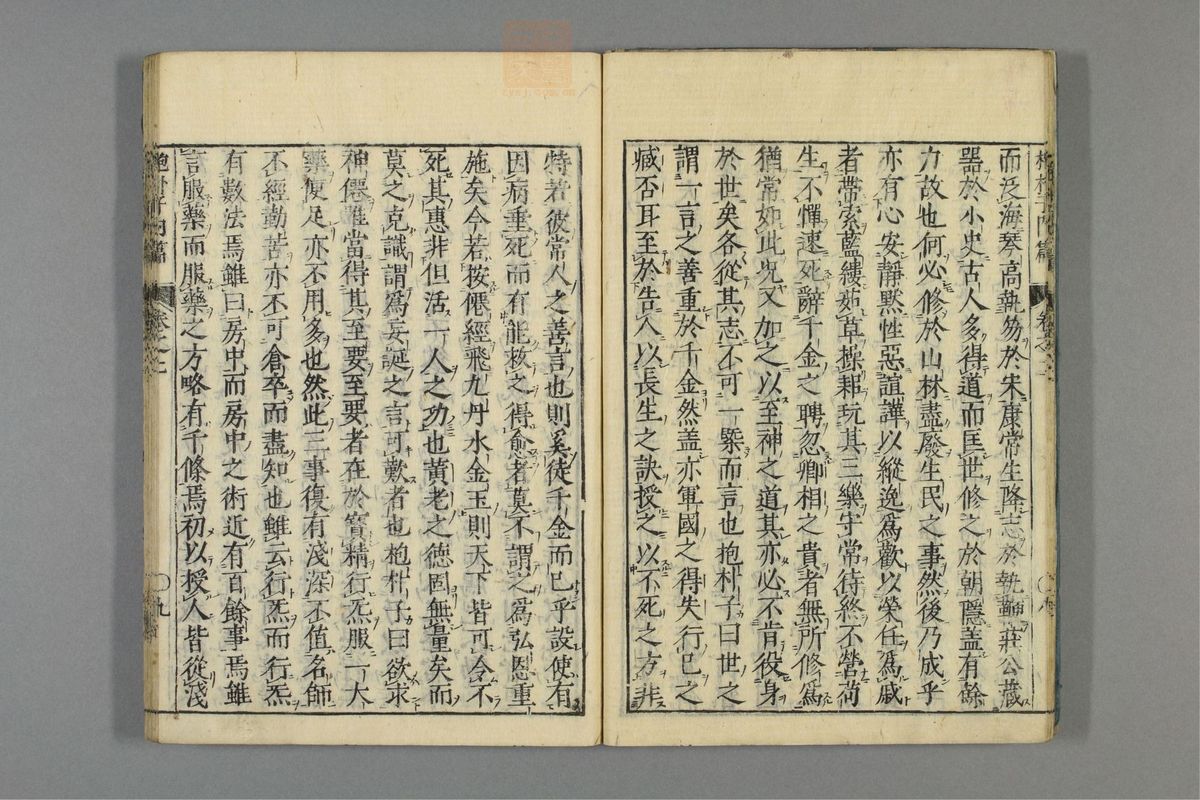 而泛海琴高執笏於宋康常生降志於執鞭莊公藏
器於小史古人多得道而匡世修之於朝隱盖有餘
力故也何必修於山林盡廢生民之事然後乃成乎
亦有心安靜默性惡諠譁以縱逸爲歡以榮任爲戚
者帶索藍縷茹草操耜玩其三樂守常待終不營苟
生不憚速死辭千金之聘忽卿相之貴者無所修爲
猶常如此况又加之以至神之道其亦必不肯役身
於世矣各從其志不可一槩而言也抱朴子曰世之
謂一言之善重於千金然盖亦軍國之得失行已之
臧否耳至於告人以長生之訣授之以不死之方非
特若彼常人之善言也則奚徒千金而已乎設使有
因病重死而有能救之得愈者莫不謂之爲弘恩重
施矣今若按僊經飛九丹水金玉則天下皆可令不
死其惠非但活一人之功也黃老之德固無量矣而
莫之克識謂爲妄誕之言可歎者也抱朴子曰欲求
神僊雖當得其至要至要者在於寳精行炁服一大
藥便足亦不用多也然此三事復有淺深不值名師
不經勤苦亦不可倉卒而盡知也雖云行炁而行炁
有數法焉雖曰房中而房中之術近有百餘事焉雖
言服藥而服藥之方略有千條焉初以授人皆從淺
抱朴子内篇
卷之
〇九